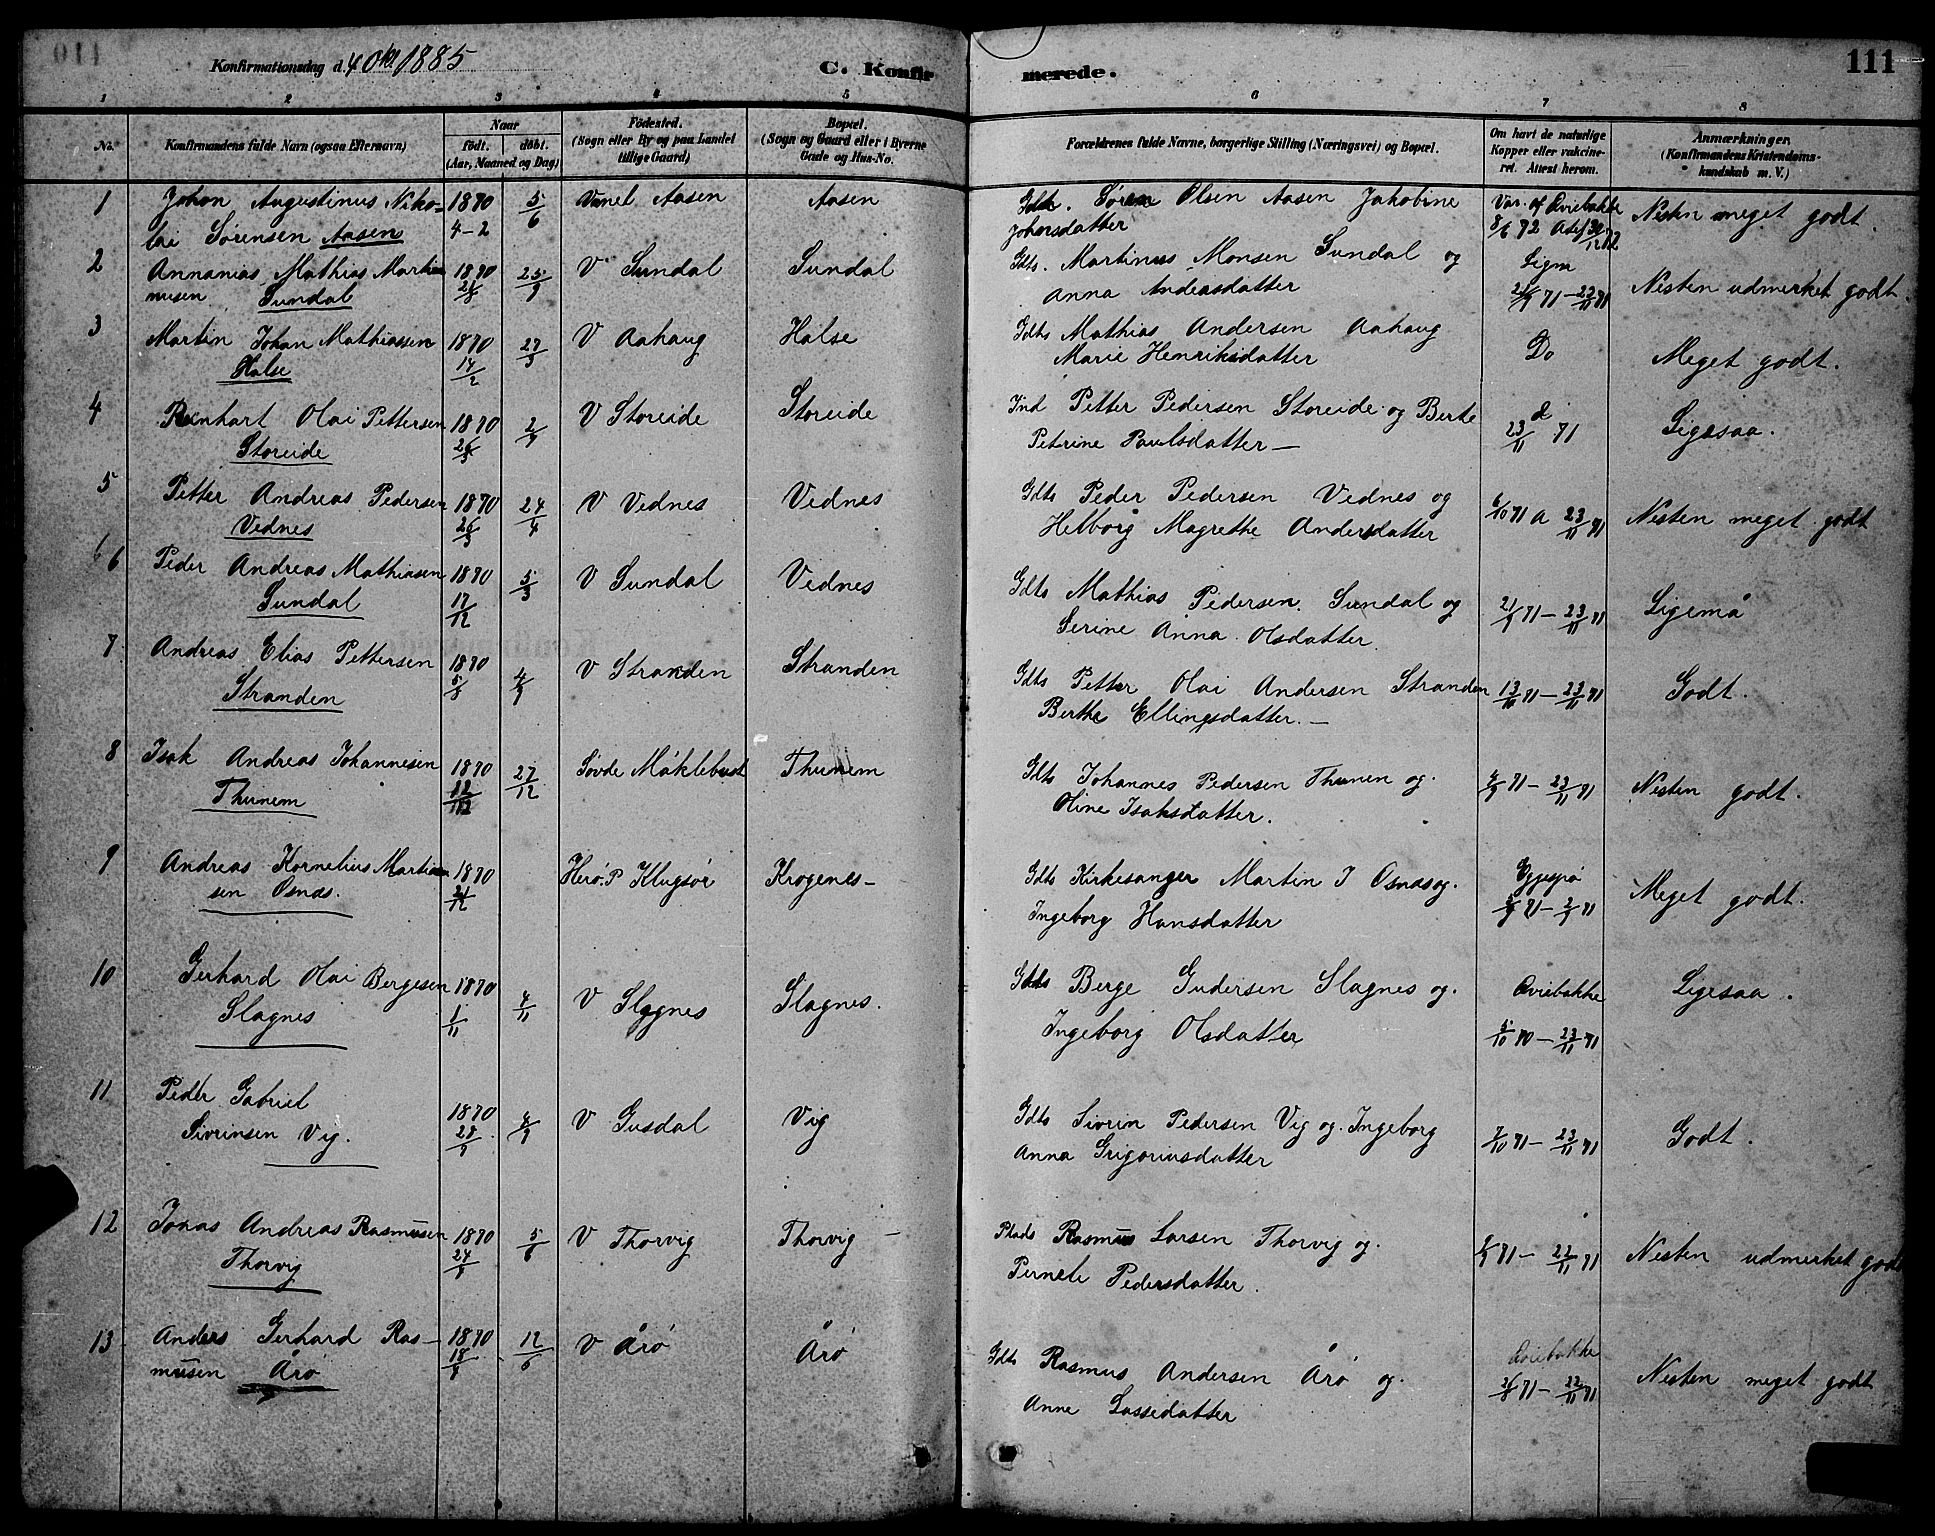 Konfirmationsdag d. 4 Okt 1885
C. Konfirmerede.
111
1 2 3 4 5 6 7 8
No.
Konfirmandens fulde Navn (ogsaa Efternavn)
Naar
født. døbt.
(Aar, Maaned og Dag)
Fødested.
(Sogn eller By og paa Landet
tillige Gaard)
Bopæl.
(Sogn og Gaard eller i Byerne
Gade og Hus-No.
Forældrenes fulde Navne, borgerlige Stilling (Næringsvei) og Bopæl.
Om havt de naturlige
Kopper eller vakcine-
ret. Attest herom.
Anmærkninger.
(Konfirmandens Kristendoms-
kundskab m. V.)
1 Johan Augustinus Niko= 1870 5/6 Aasen Aasen Søren Olsen Aasen Jakobine Nesten meget godt.
lai Sørensen Aasen 4-2 Johansdatter
2 Annanias Mathias Marti 1870 25/9 V Sundal Sundal Gdts. Martinus Monsen Sundal og Nesten udmerket godt.
nusen Sundal 21/8 Anna Andeasdatter 71 - 23/11 71
3 Martin Johan Mathiassen 1870 27/3 V Aahaug Halse Gdts Mathias Andersen Aahaug Do Meget godt.
Halse 14/2 Marie Henriksdatter
4 Renhart Olai Pettersen 1870 V Storeide Storeide Ind Petter Pedersen Storeide og Berte Ligesaa.
Storeide 26/3 Petrine Paulsdatter - 23/11 71
5 Petter Andreas Pedersen 1870 24/4 V Vednes Vednes Gdts Peder Pedersen Vednes og 6/10 71 a 23/11 71 Nesten meget godt
Vednes 26/3 Helborg Magrethe Andersdatter
6 6 Peder Andreas Mathiasen 1870 5/3 V Sundal Vednes Gdts Mathias Pedersen Sundal og 21/9 71 - 23/11 71 Ligemå
Sundal 17/12 Serine Anna Olsdatter
7 Andreas Elias Pettersen 1870 4/9 V Stranden Stranden Gdts Petter Olai Andersen Stranden 13/10 71 - 23/11 71 Godt.
Stranden Berthe Ellingsdatter. -
8 Isak Andreas Johannesen 1870 27/12 Søvde Møklebust Thunem Gdts Johannes Pedersen Thunen og 71 - 23/11 71 Nesten godt.
Thunem 12/12 Oline Isaksdatter.
9 Andreas Kornelius Martin 1870 Herø. P Klugsør Krogenes - Gdts Kirkesanger Martin J Osnæs og. Meget godt.
sen Osnæs. 21/12 Ingeborg Hansdatter 71
10 Gerhard Olai Bergesen 1870 4/11 V Slagnes Slagnes. Gdts Berge Gudersen Slagnes og. Aviebakke Ligesaa.
Slagnes 1/11 Ingeborg Olsdatter 5/10 70 - 23/11 71
11 Peder Gabriel 1870 4/9 V Gusdal Vig Gdts Sivrin Pedersen Vig og Ingeborg 7/10 71 - 23/11 71 Godt.
Sivrinsen Vig. 28 Anna Grigoriusdatter
12 Jonas Andreas Rasmusen 1870 5/6 V Thorvig Thorvig - Plads Rasmus Larsen Thorvig og. 71 - 22/11 71 Nesten udmerket godt
Thorvig 24 Pernele Pedersdatter.
13 Anders Gerhard Ras- 1870 12/6 V Årø Årø Gdts Rasmus Andersen Årø og. Aviebakke Nesten meget godt
musen Årø 18 Anne Lassedatter 71 - 22/11 71